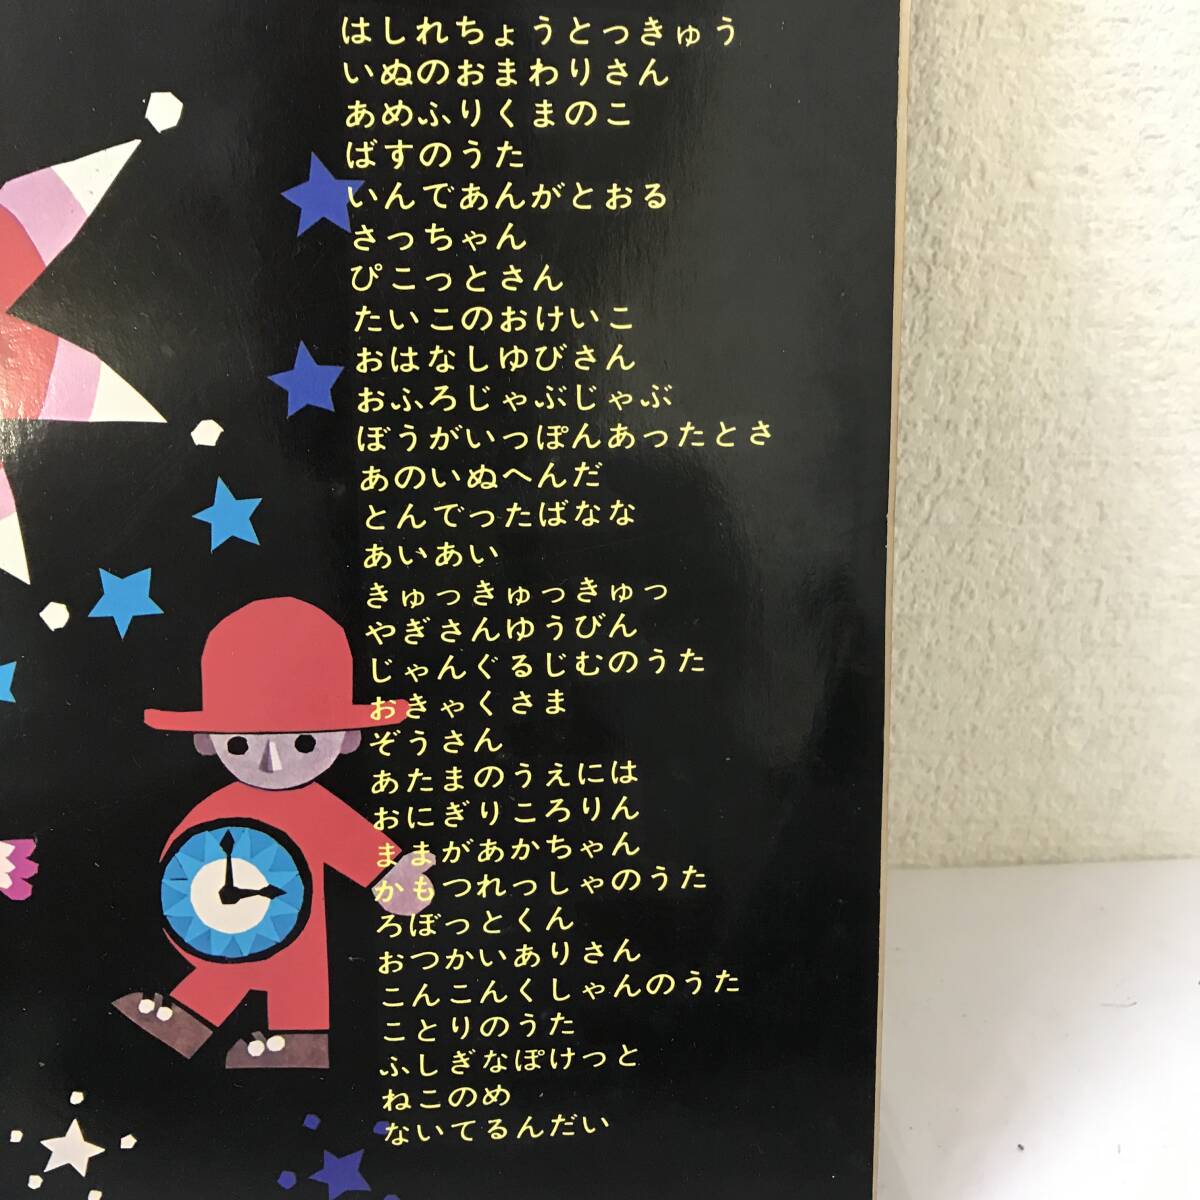 はしれちょうとっきゅう
いぬのおまわりさん
あめふりくまのこ
ばすのうた
いんであんがとおる
さっちゃん
ぴこっとさん
たいこのおけいこ
おはなしゆびさん
おふろじゃぶじゃぶ
ぼうがいっぽんあったとさ
あのいぬへんだ
とんでったばなな
あいあい
きゅっきゅっきゅっ
やぎさんゆうびん
じゃんぐるじむのうた
おきゃくさま
ぞうさん
あたまのうえには
おにぎりころりん
ままがあかちゃん
かもつれっしゃのうた
ろぼっとくん
おつかいありさん
こんこんくしゃんのうた
ことりのうた
ふしぎなぽけっと
ねこのめ
ないてるんだい